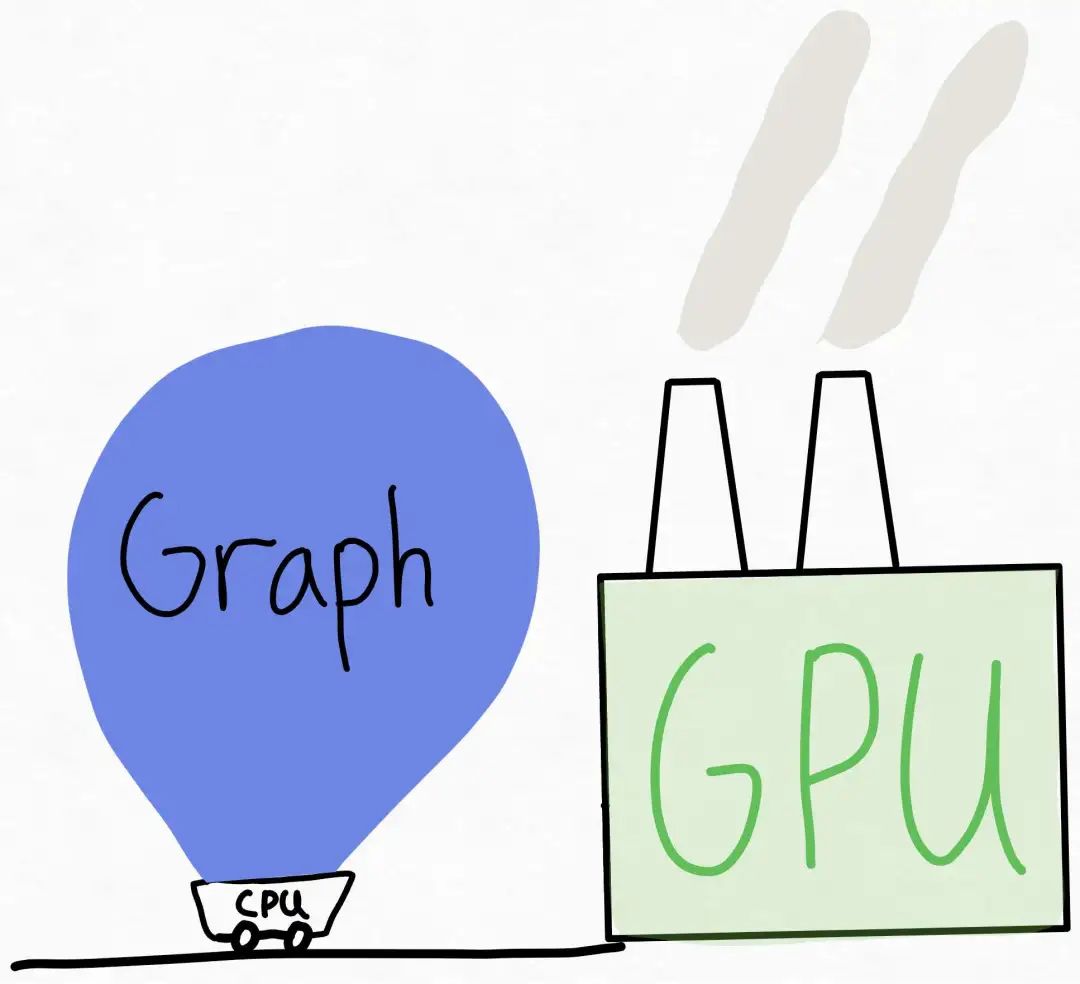 Graph
CPU
GPU